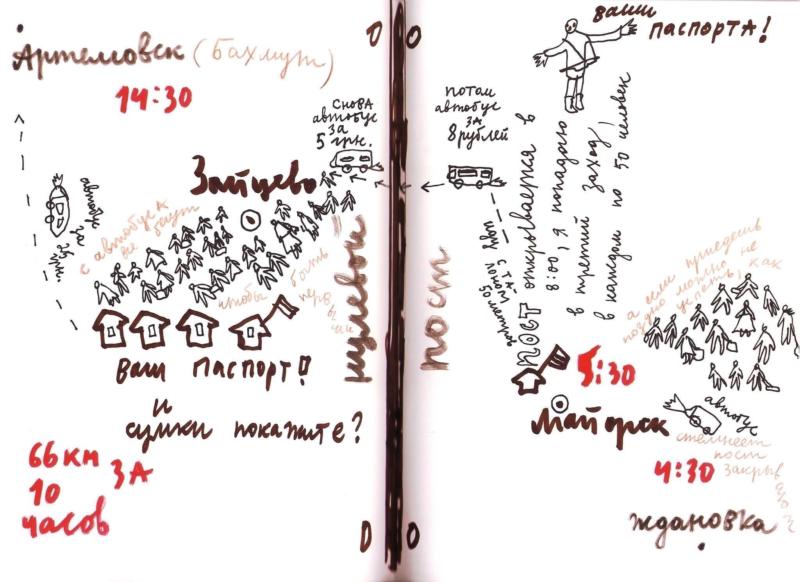 Артемовск (Бахмут)
14:30
снова
автобус
за
5 грн.
потом
автобус
за
8 рублей
ваш
паспорта!
Зайцево
с автобуса
все бегут
чтобы быть
первы
ваш паспорт!!
и
сумки покажите?
66 км
за
10
часов
нулевой
пост
ПОСТ открывается в
8:00, я попадаю
в третий заход!
в каждом по 50 человек
50 метров
а если приедешь
поздно можно не
успеть, как
5:30
Майорск
автобус
4:30
стемнеет
пост
закрыв
Ждановка